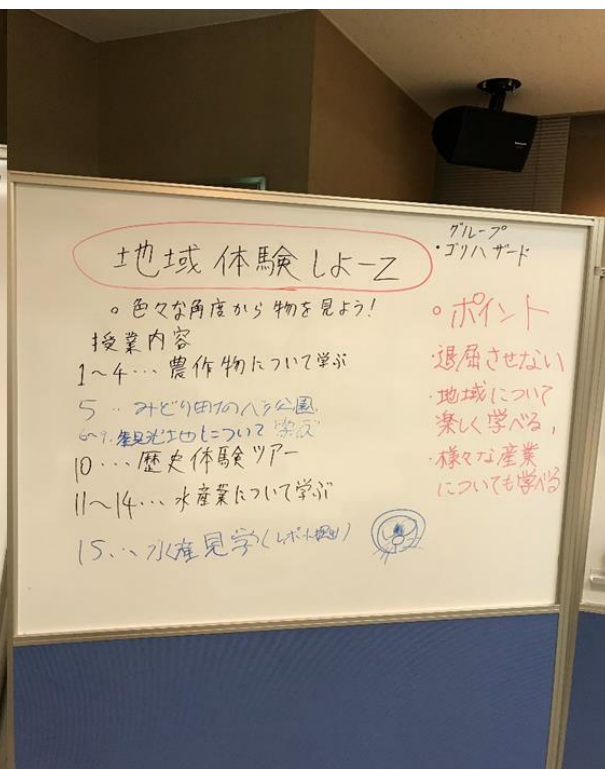 地域体験しよーZ
グループ
・ゴリハザード
○色々な角度から物を見よう!
授業内容
1～4…農作物について学ぶ
5‥みどり
公園
6～9.観光地について学ぶ
10…歴史体験ツアー
11～14…水産業について学ぶ
15…水産見学(レポート提出)
○ポイント
・退屈させない
・地域について
楽しく学べる,
・様々な産業
についても学べる